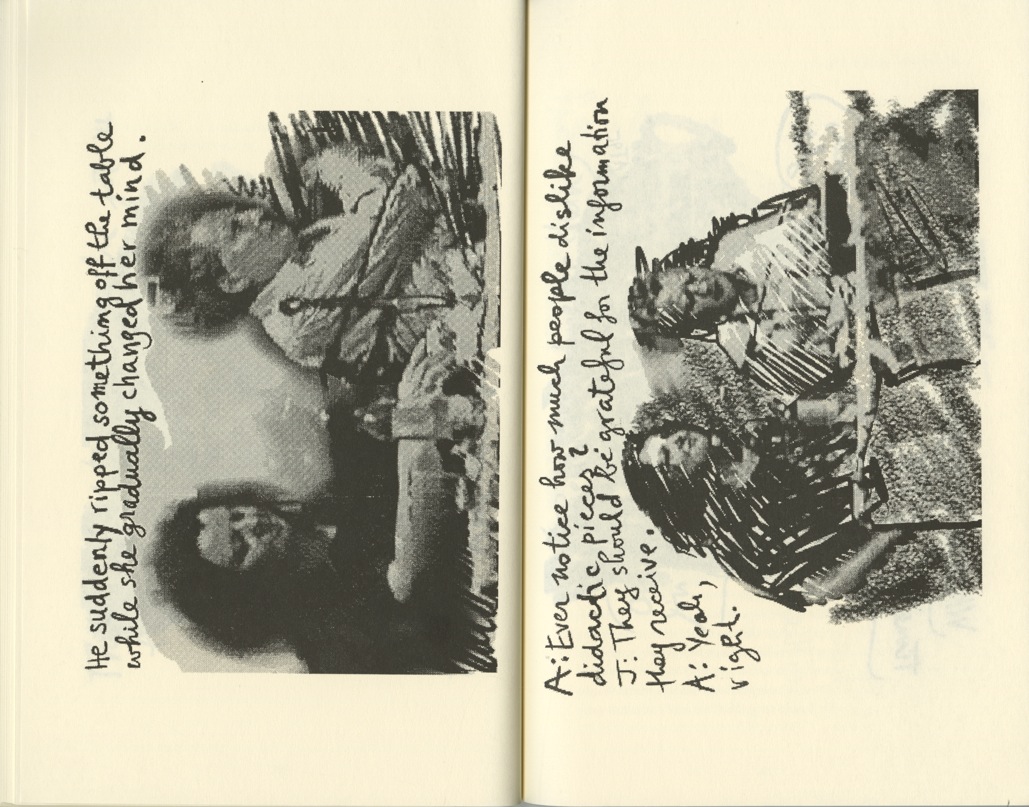 He suddenly ripped something off the table
while she gradually changed her mind.
A: Ever notice how much people dislike
didactic pieces?
J: They should be grateful for the information
they receive.
A: Yeah,
right.